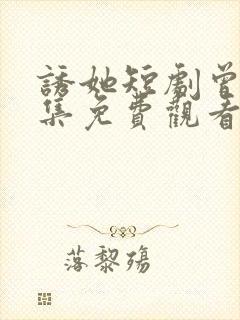 誘她短劇曾
集免費觀看
落黎殤